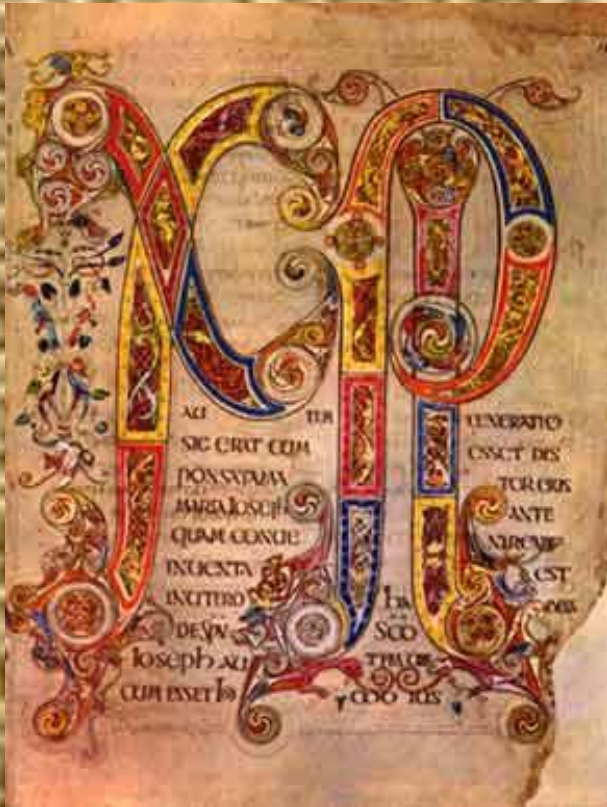 XPI
AU TEM GENERATIO
SIC ERAT CUM ESSET DIS
PONSATA MA TER EIUS
MARIA IOSEPH ANTE
QUAM CONUE
INUENTA EST
IN UTERO HA
DE SPU SCO
Ioseph AU
CUM ESSET HO MO IUS